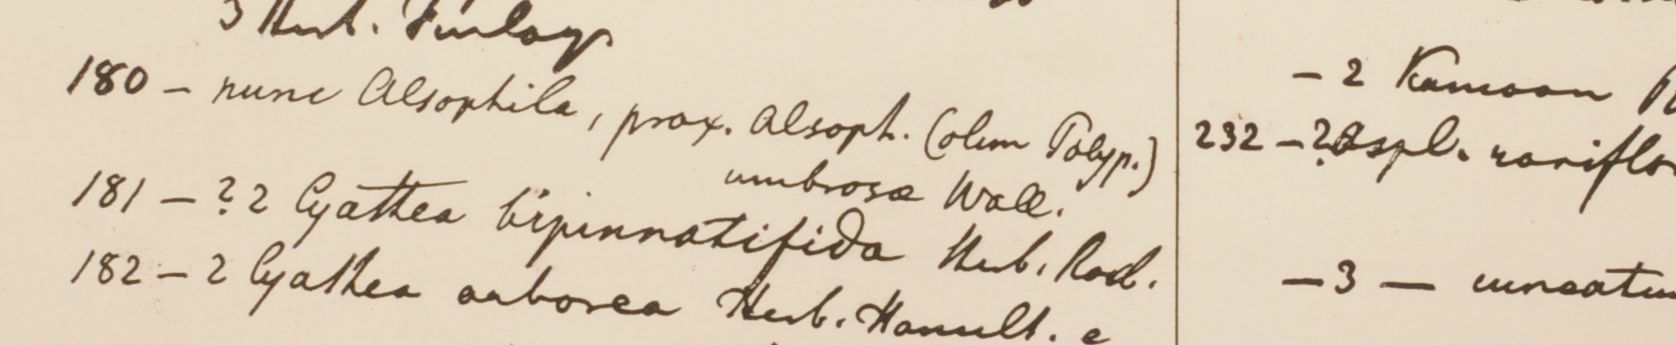 3 Herb. Finlays
180 – nunc Alsophila, prox. Alsoph. (olim Polyp.)
umbrosae Wall.
181 – ? 2 Cyathea bipinnatifida Herb. Rod.
182 – 2 Cyathea arborea Herb. Hamilt. e
– 2 Kamoon
232 – ? Aspl. rariflo
– 3 – cuneatum